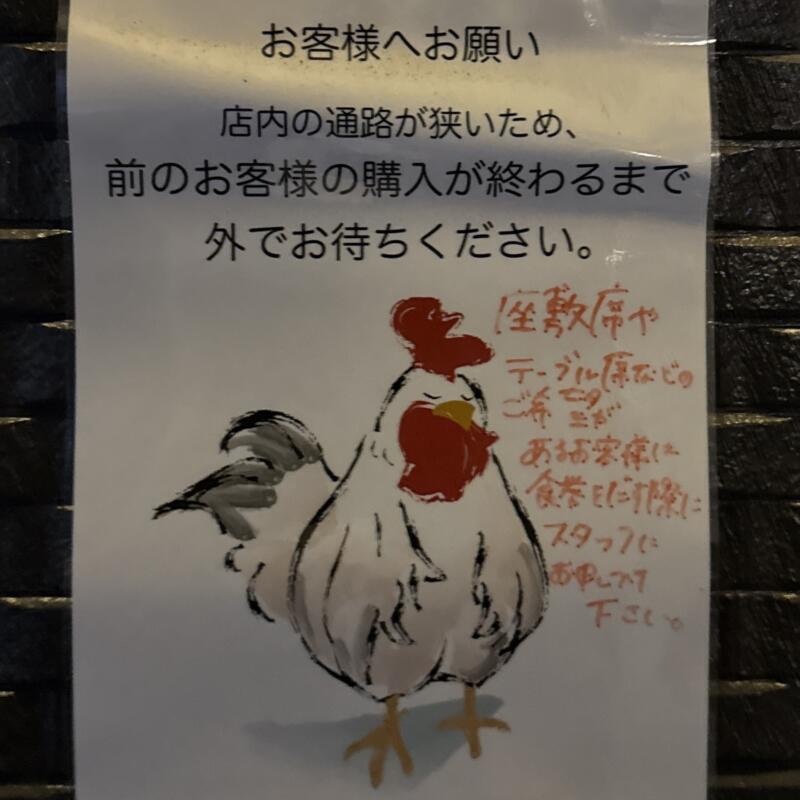 お客様へお願い
店内の通路が狭いため、
前のお客様の購入が終わるまで
外でお待ちください。
座敷席や
テーブル席などの
ご希望が
あるお客様は
食券をだす際に
スタッフに
お申しつけ
下さい。